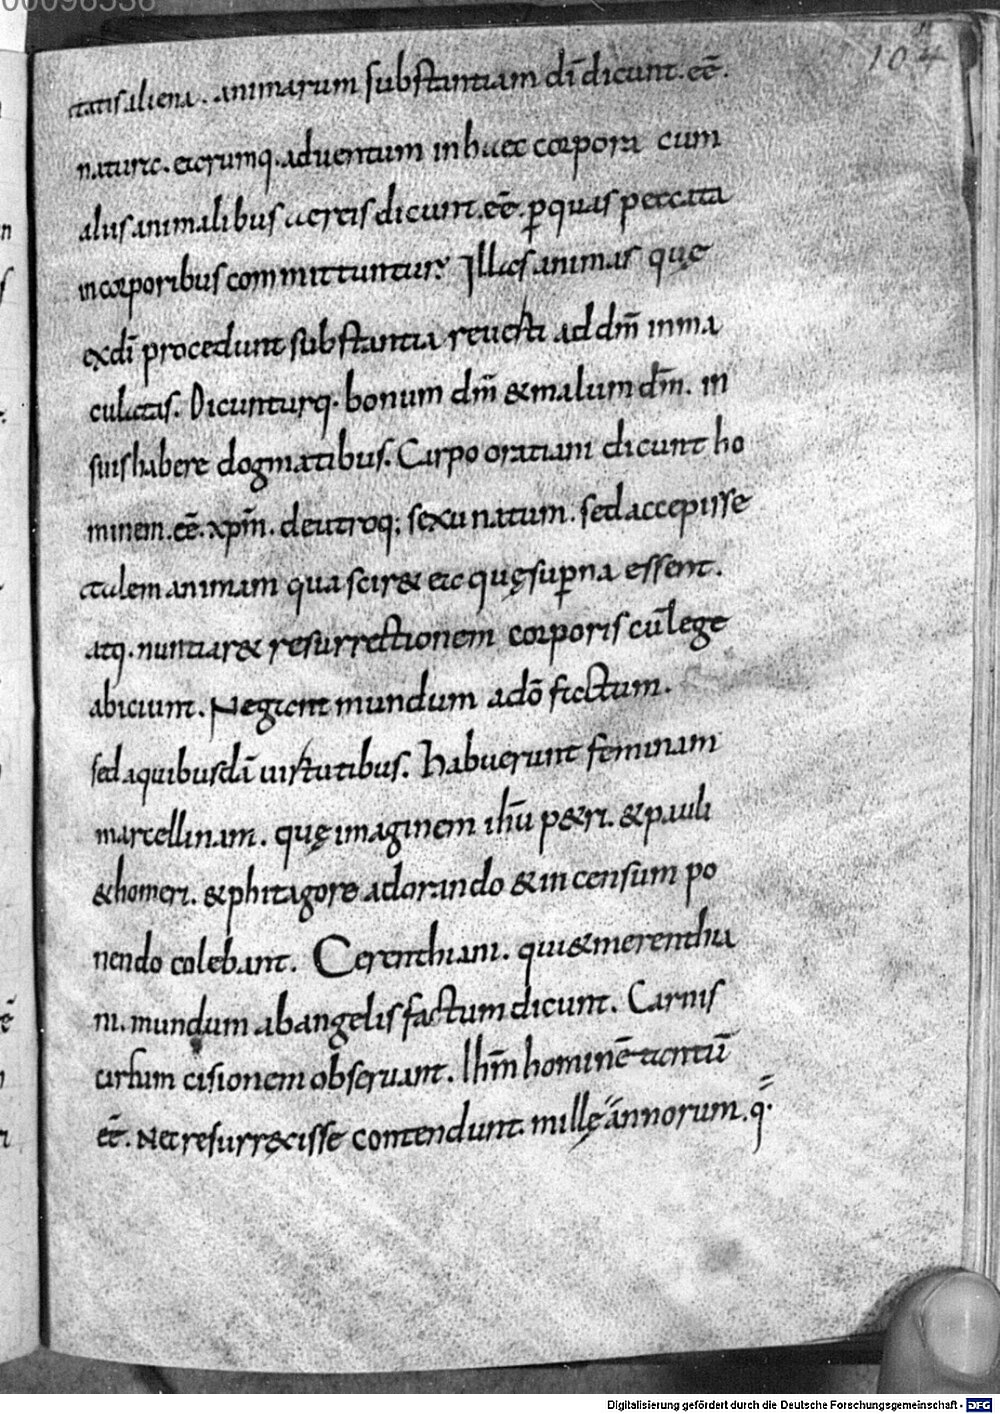 00096538
104
tatis aliena. animarum substantiam dī dicunt. eē.
naturę. earumq. aduentum in haec corpora cum
aliis animalibus certis dicunt. eē. p quas peccata
in corporibus committuntur; Illas animas quę
ex dī procedunt substantia reuerti ad dm̄ inma
culatas. Dicunturq. bonum dm̄ & malum dm̄. in
suis habere dogmatibus. Carpo oratiani dicunt ho
minem. eē. xpm̄. de utroq; sexu natum. sed accepisse
talem animam qua scir& ea quę supna essent.
atq. nuntiar& resurrectionem corporis cū lege
abiciunt. Negant mundum a dō factum.
sed a quibusdā uirtutibus. Habuerunt feminam
marcellinam. quę imaginem ihū p&ri. & pauli
& homeri. & phitagore adorando & incensum po
nendo colebant. Cerenthiani. qui & merenthia
ni. mundum ab angelis factum dicunt. Carnis
circum cisionem obseruant. Ihm̄ hominē tantū
eē. Nec resurr&cisse contendunt. mille annorum. q.
Digitalisierung gefördert durch die Deutsche Forschungsgemeinschaft - DFG